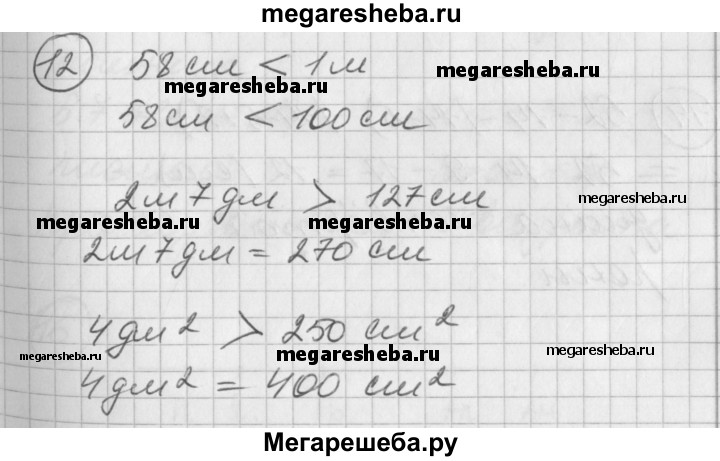 megaresheba.ru
12 58 см < 1 м
megaresheba.ru
megaresheba.ru
58 см < 100 см
2 м 7 дм > 127 см
megaresheba.ru
megaresheba.ru
megaresheba.ru
2 м 7 дм = 270 см
4 дм² > 250 см²
megaresheba.ru
megaresheba.ru
megaresheba.ru
4 дм² = 400 см²
Мегарешеба.ру